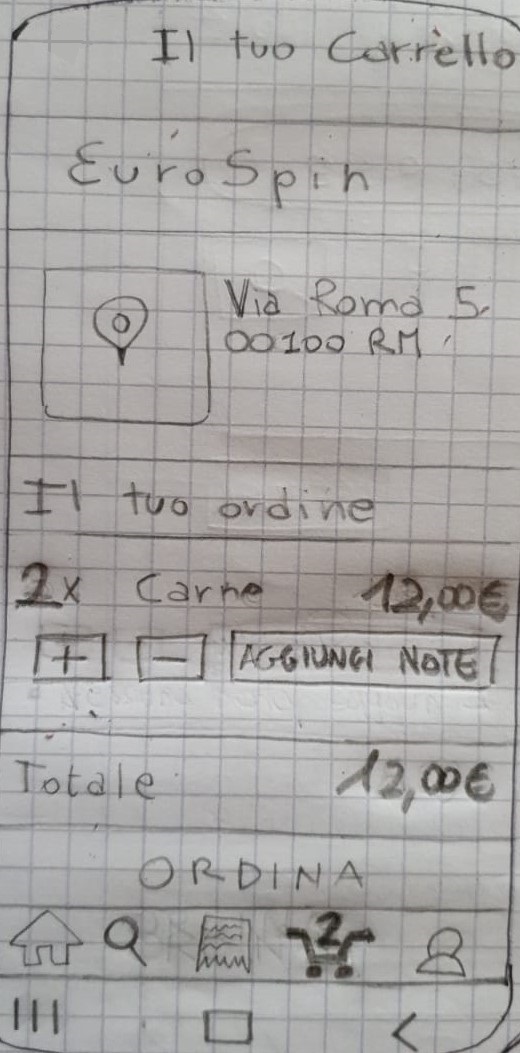 Il tuo Carrello
EuroSpin
Via Roma 5,
00100 RM
Il tuo ordine
2x Carne 12,00€
+ - AGGIUNGI NOTE
Totale 12,00€
ORDINA
2